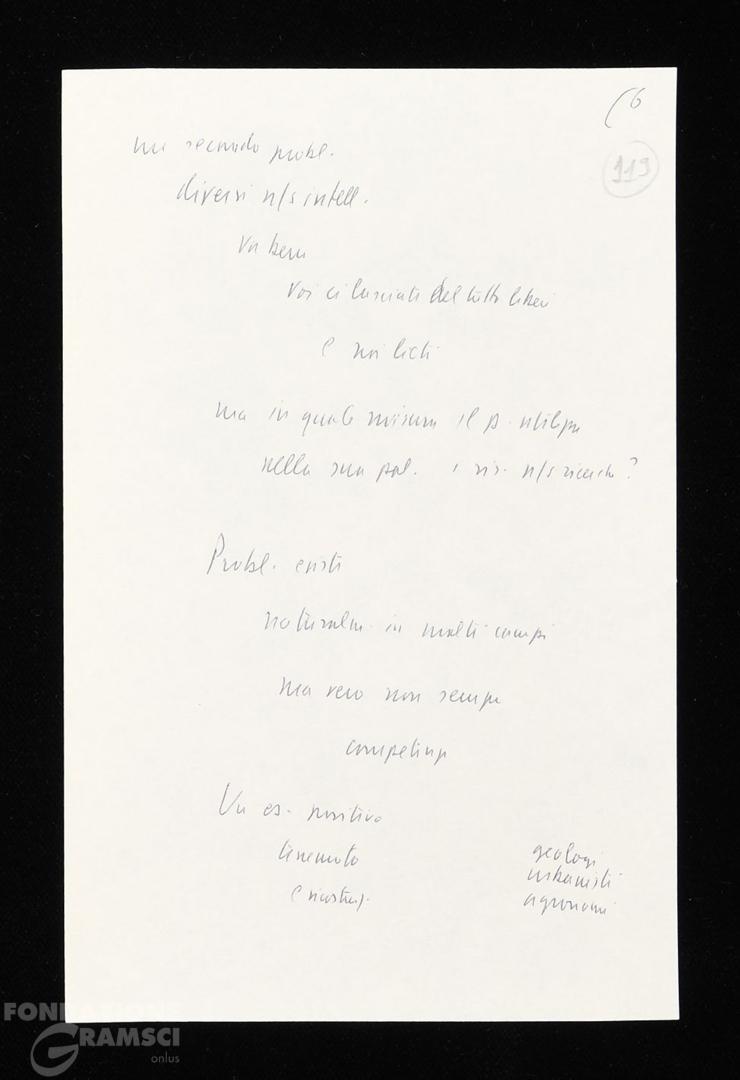 (6
119
un secondo probl.
diversi n/s intell.
va bene
voi ci lasciate del tutto liberi
e noi lieti
ma in quale misura il p. utilizza
nella sua pol. i ris. n/s ricerche?
Probl. esiste
naturalm. in molti campi
ma vero non sempre
Un es. positivo
terremoto
geologi
urbanisti
agronomi
FONDAZIONE
GRAMSCI
onlus